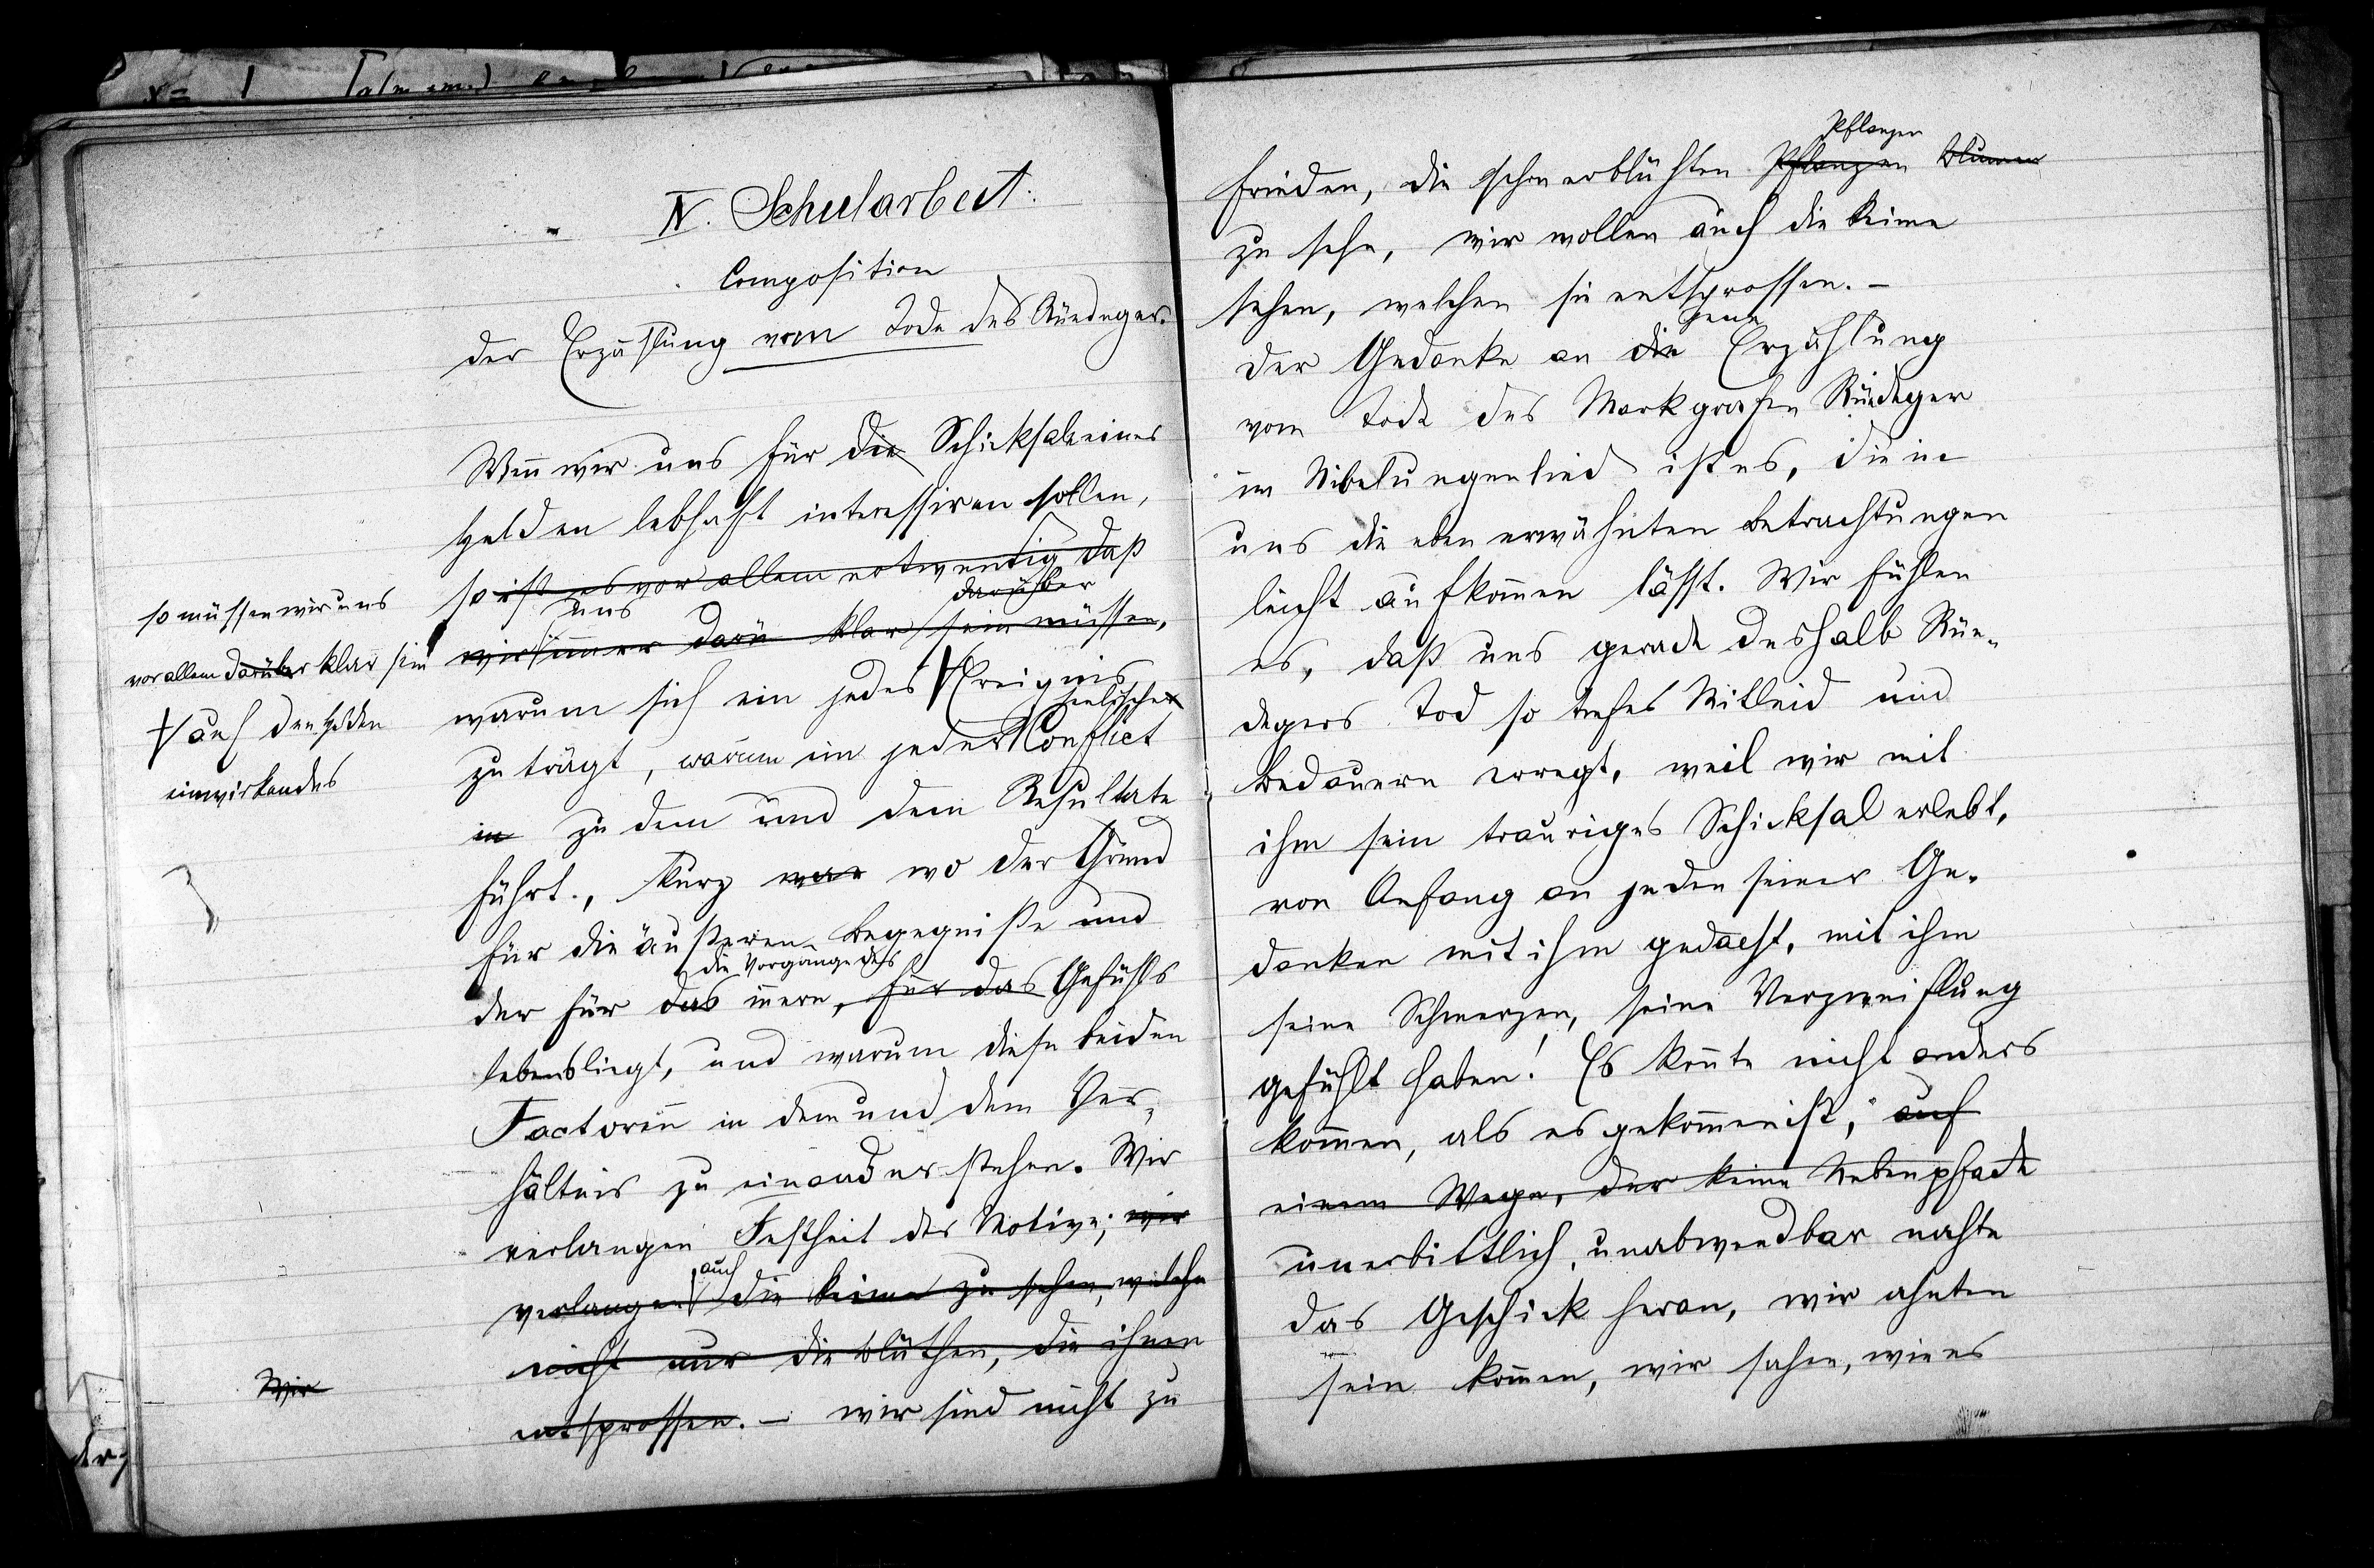 IV. Schularbeit.
Composition
der Erzählung vom Tode des Rüedeger.
Wenn wir uns für die Schicksale eines
Helden lebhaft interessiren sollen,
so ist es vor allem notwendig daß
uns darüber
wir immer darü klar sein müssen,
so müssen wir uns
vor allem darüber klar sein
warum sich ein jedes Ereignis
auf den Helden
einwirkendes
seelische
zu trägt, warum ein jeder Conflict
in zu dem und dem Resultate
führt., kurz war wo der Grund
für die äußeren Begegniße und
die Vorgänge des
der für das innere, für das Gefühls
lebens liegt, und warum diese beiden
Factoren in dem und dem Ver-
hältnis zu einander stehen. Wir
verlangen Festheit der Motive; wir
auch
verlangen die Keime zu sehen, welche
nicht nur die Blüthen, die ihnen
Wir
entsprossen. – wir sind nicht zu
Pflanzen
frieden, die schon erblühten Pflanzen Blumen
zu sehn, wir wollen auch die Keime
sehen, welchen sie entsprossen. –
jene
Der Gedanke an die Erzählung
vom Tode des Markgrafen Rüedeger
im Nibelungenlied ist es, die in
uns die eben erwähnten Betrachtungen
leicht aufkom̅en läßt. Wir fühlen
es, daß uns gerade deshalb Rüe-
degers Tod so tiefes Mitleid und
Bedauern erregt, weil wir mit
ihm sein trauriges Schicksal erlebt,
von Anfang an jeden seiner Ge-
danken mit ihm gedacht, mit ihm
seine Schmerzen, seine Verzweiflung
gefühlt haben! Es kon̅te nicht anders
kom̅en, als es gekom̅en ist, auf
einem Wege, der keine Nebenpfade
unerbittlich, unabwendbar nahte
das Geschick heran, wir ahnten
sein Kom̅en, wir sahen, wie es